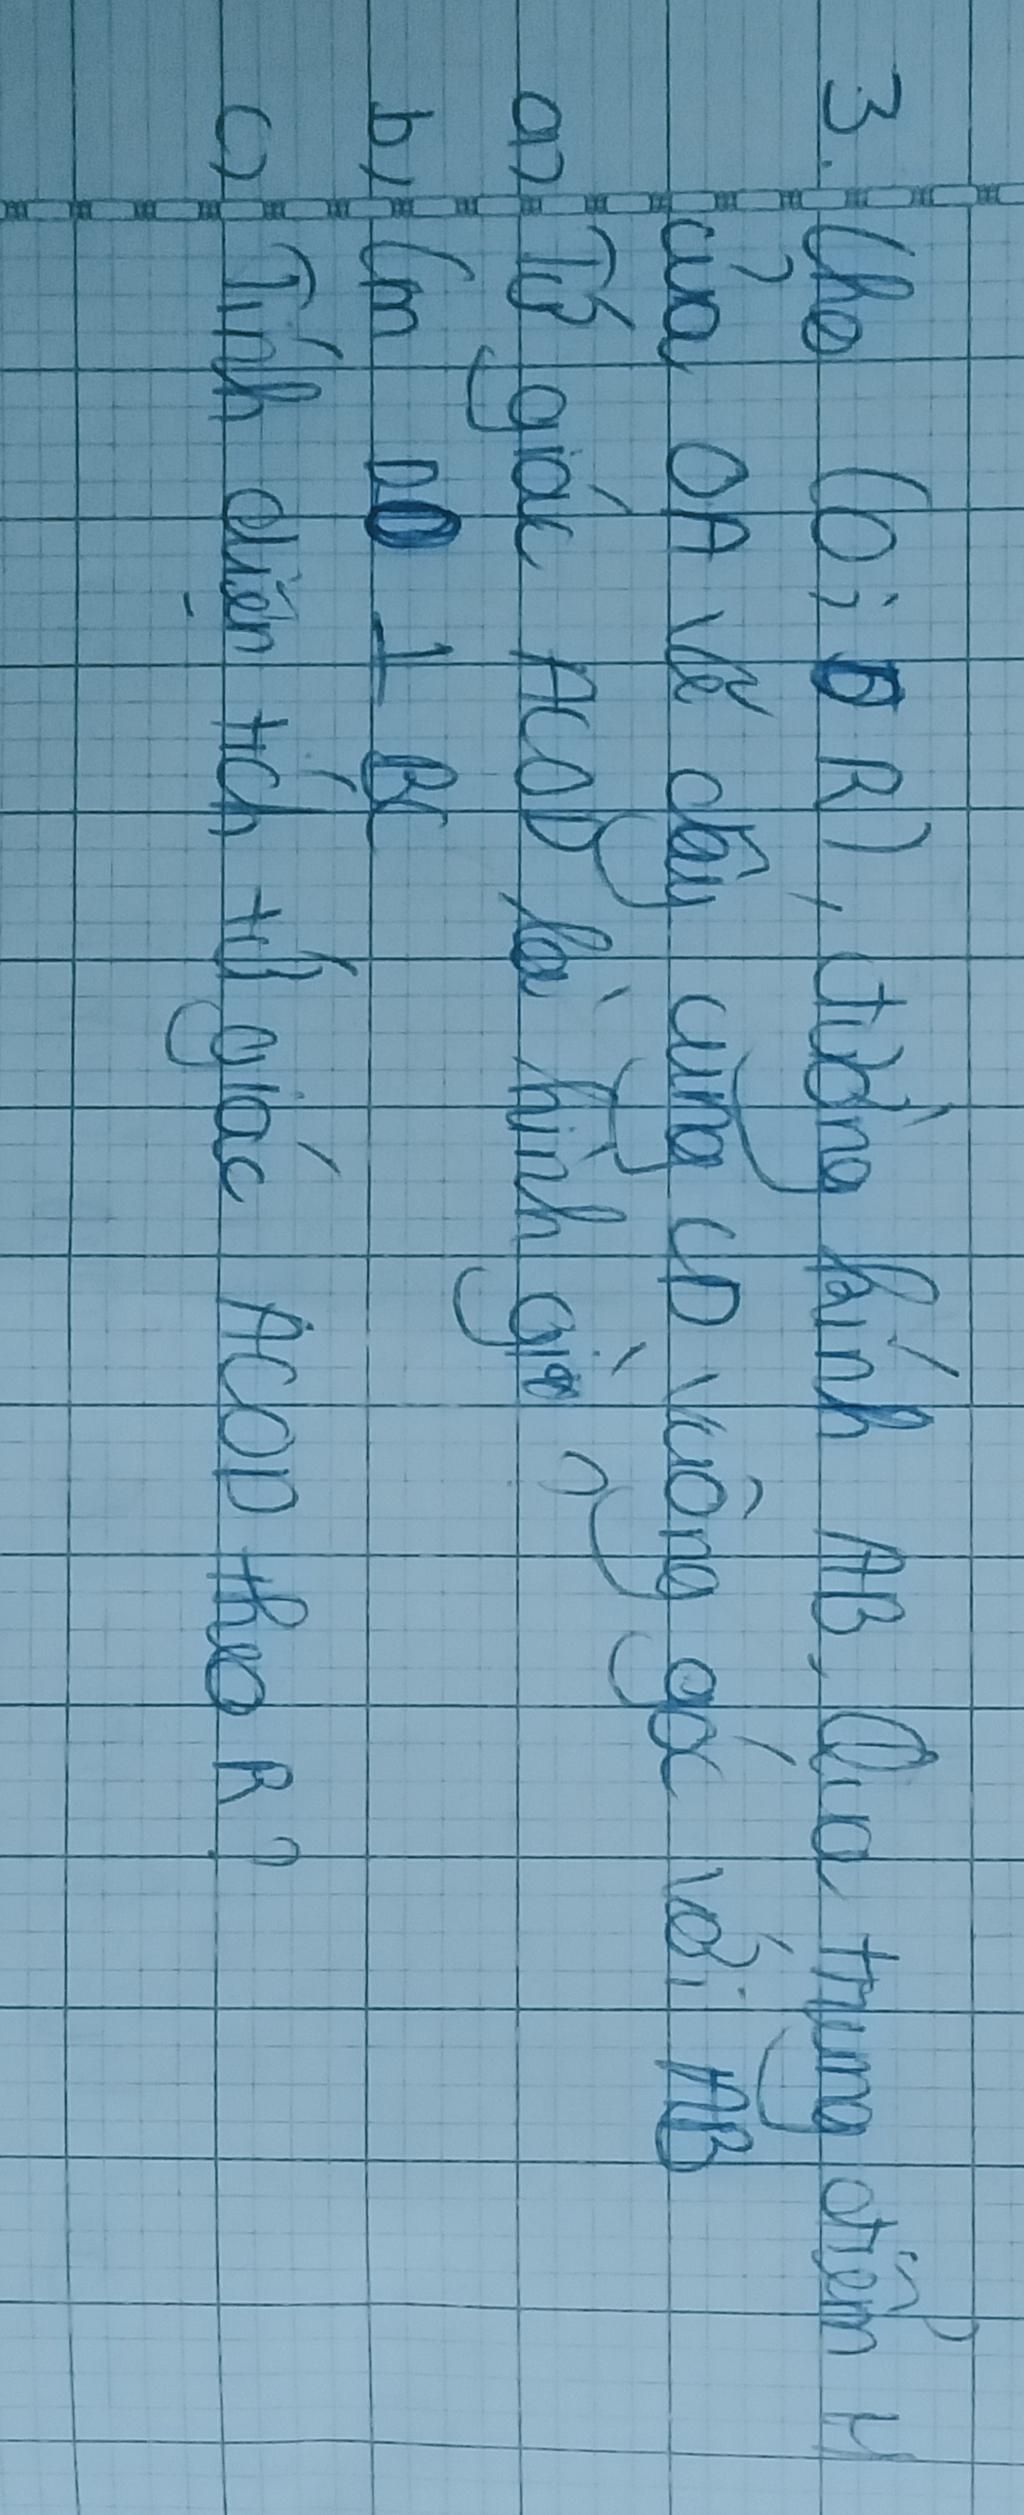 3. Cho (O; R), đường kính AB, Qua trung điểm H
của OA vẽ dây cung CD vuông góc với AB
a) Tứ giác ACOD là hình gì?
b, Cm DO ⊥ BC
c) Tính diện tích tứ giác ACOD theo R?